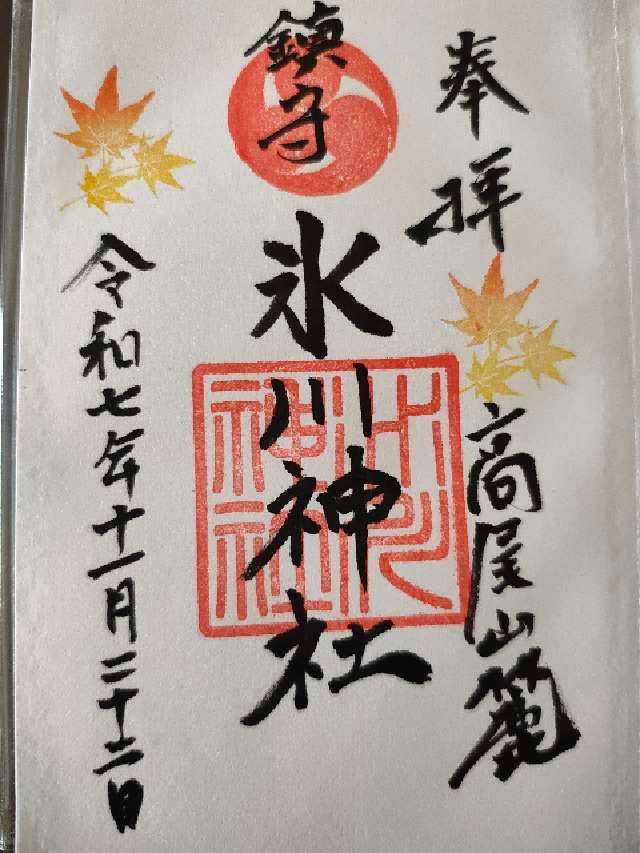 奉拝
高尾山麓
鎮守
氷川神社
氷川神社
令和七年十一月二十二日